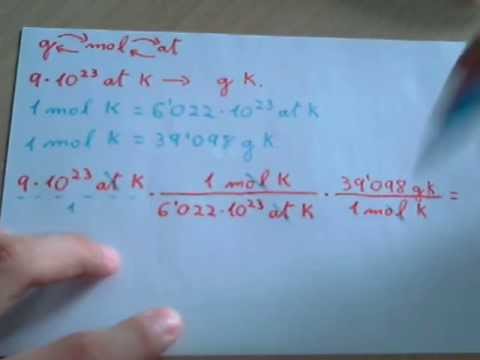 g ⇄ mol ⇄ at
9·10²³ at K → g K.
1 mol K = 6'022·10²³ at K
1 mol K = 39'098 g K
9·10²³ at K / 1 · 1 mol K / 6'022·10²³ at K · 39'098 g K / 1 mol K =